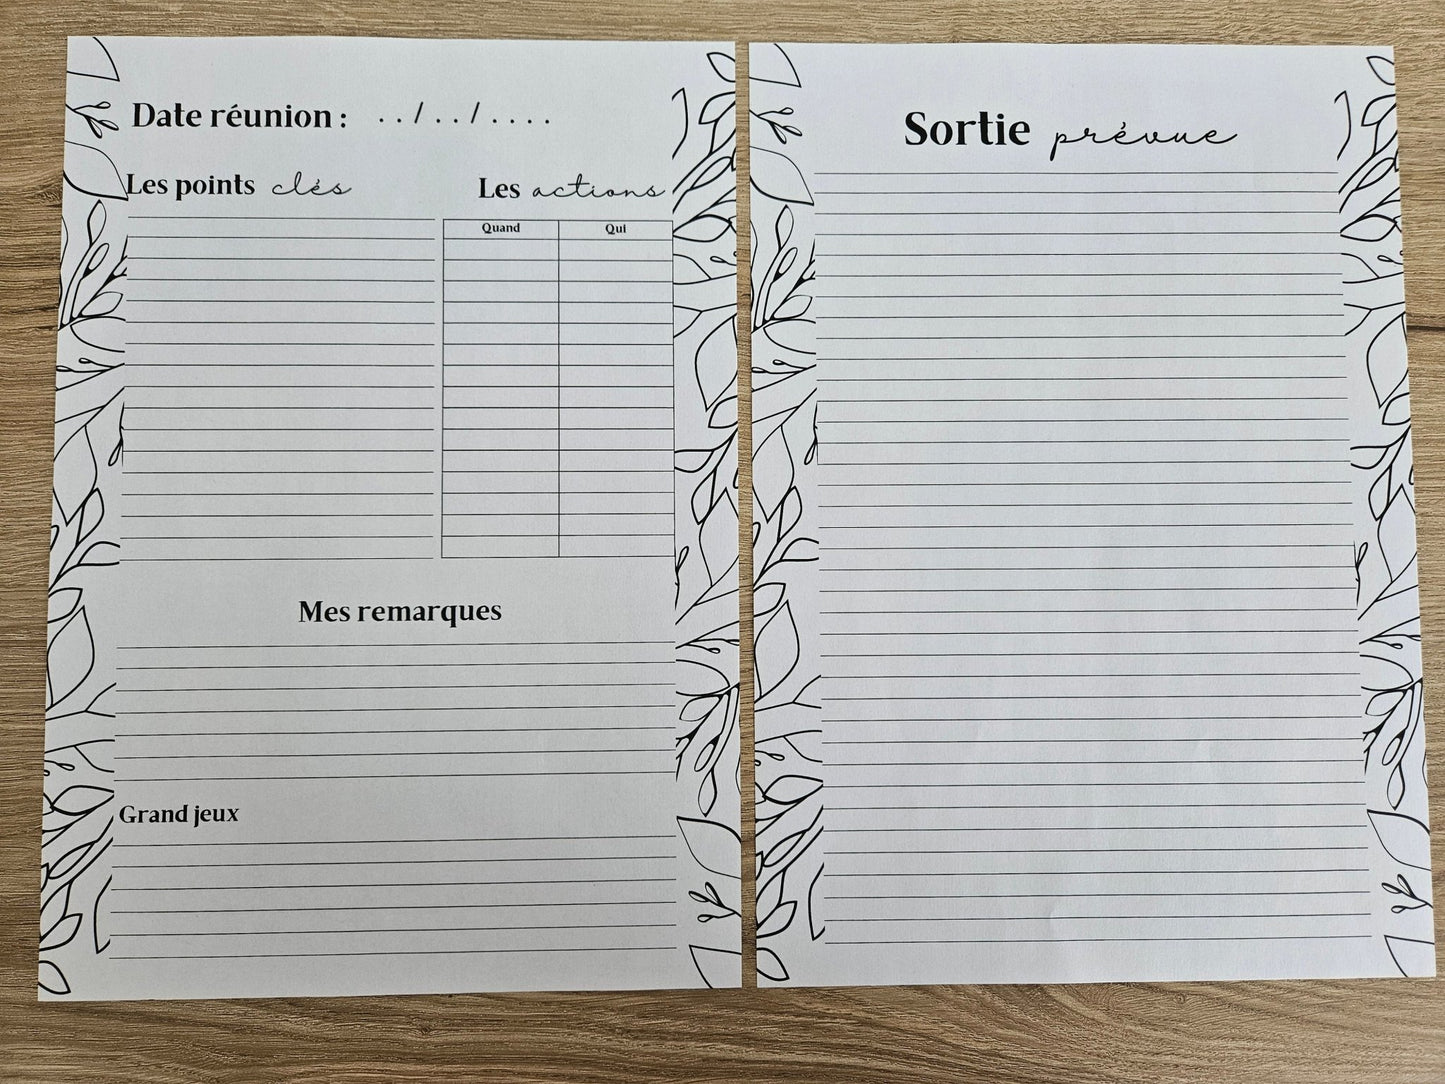 Date réunion : ../../....
Les points clés
Les actions
Quand Qui
Mes remarques
Grand jeux
Sortie prévue